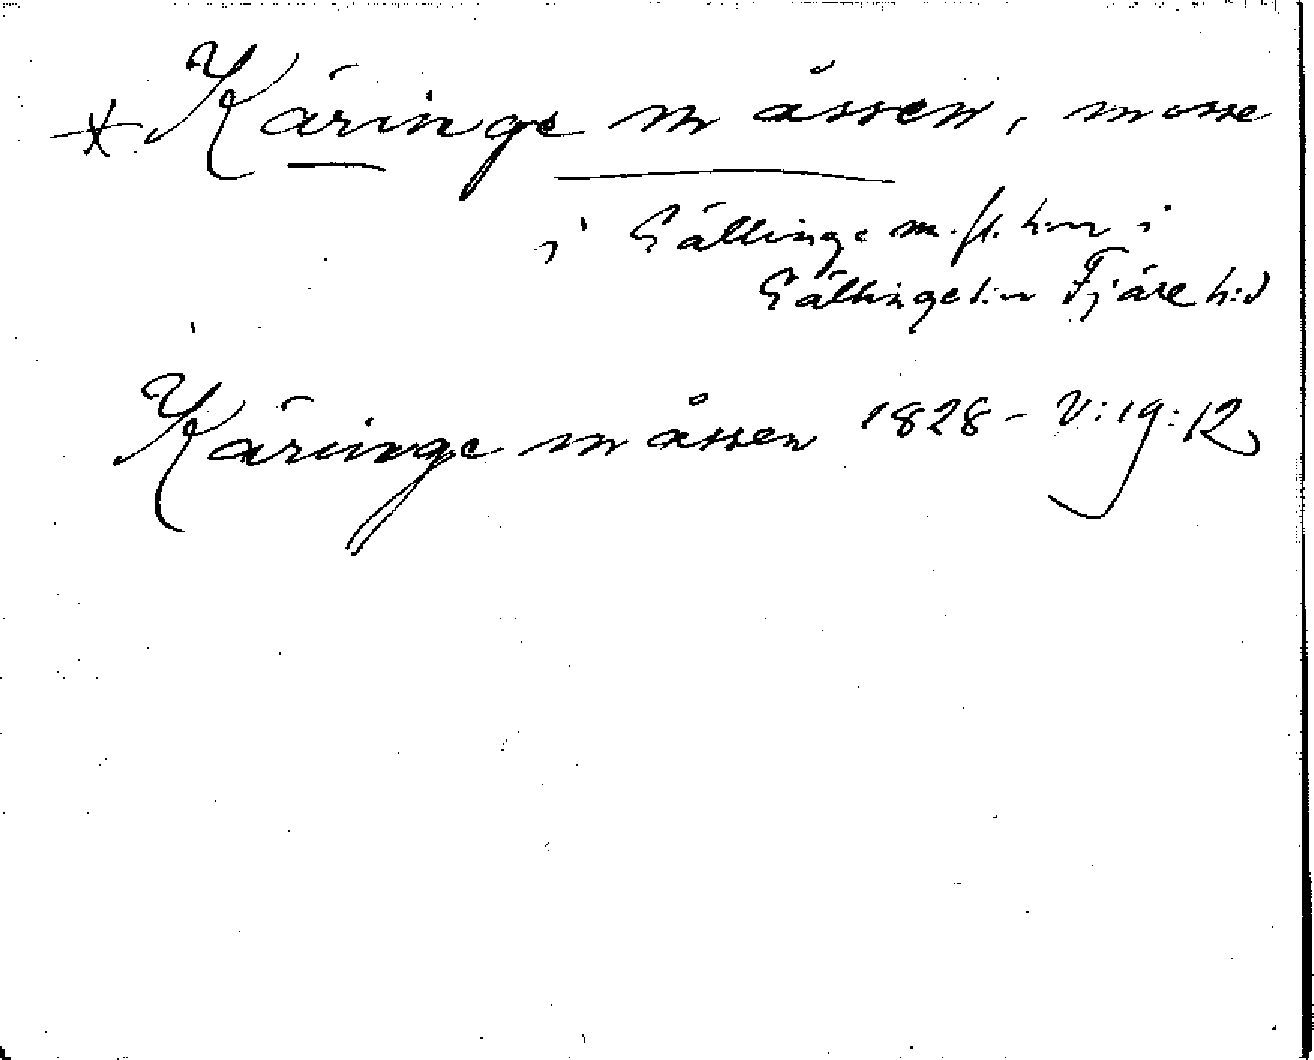 * Käringe måssen, mosse
i Gällinge m. fl. h:n i
Gällinge s:n Fjäre h:d
Käringe måssen 1828 - V:19:12